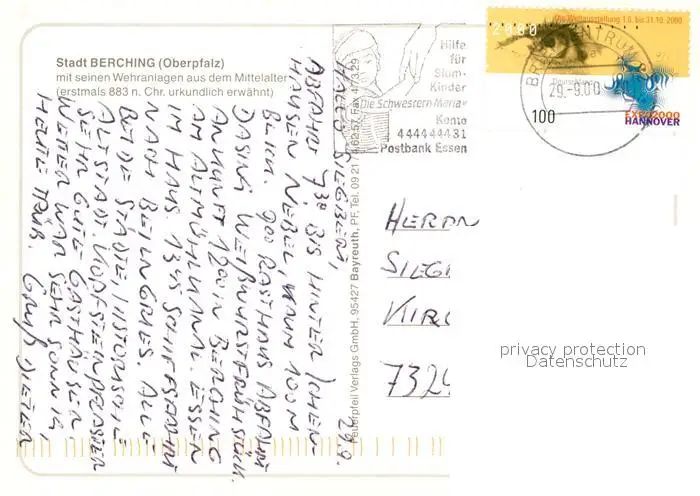 Stadt BERCHING (Oberpfalz)
mit seinen Wehranlagen aus dem Mittelalter
(erstmals 883 n. Chr. urkundlich erwähnt)
Hilfe
für
Slum-
Kinder
"Die Schwestern Maria"
Konto
4444444 31
Postbank Essen
Die Weltausstellung 1.6. bis 31.10. 2000
2000
29.-9.00
100
EXPO2000
HANNOVER
29.9.
HALLO SIEGBERT,
ABFAHRT 7³⁰ BIS HINTER
HAUSEN NEBEL, KAUM 100 M
BLICK. 9⁰⁰ RASTHAUS
WEIßWURSTFRÜHSTÜCK.
ANKUNFT 12⁰⁰ IN BERCHING
AM ALTMÜHLKANAL. ESSEN
IM HAUS. 13⁴⁵ SCHIFFSFAHRT
NACH BEILNGRIES. ALLE
BEIDE STÄDTE, HISTORISCHE
ALTSTADT KOPFSTEINPFLASTER
SEHR GUTE GASTHÄUSER
WETTER WAR SEHR SONNIG,
HEUTE TRÜB. GRUß DIETER
Feuerpfeil Verlags GmbH, 95427 Bayreuth, PF, Tel. 09 21 / 4 62 57, Fax 4 73 29
HERRN
SIEG
KIRC
7329
privacy protection
Datenschutz